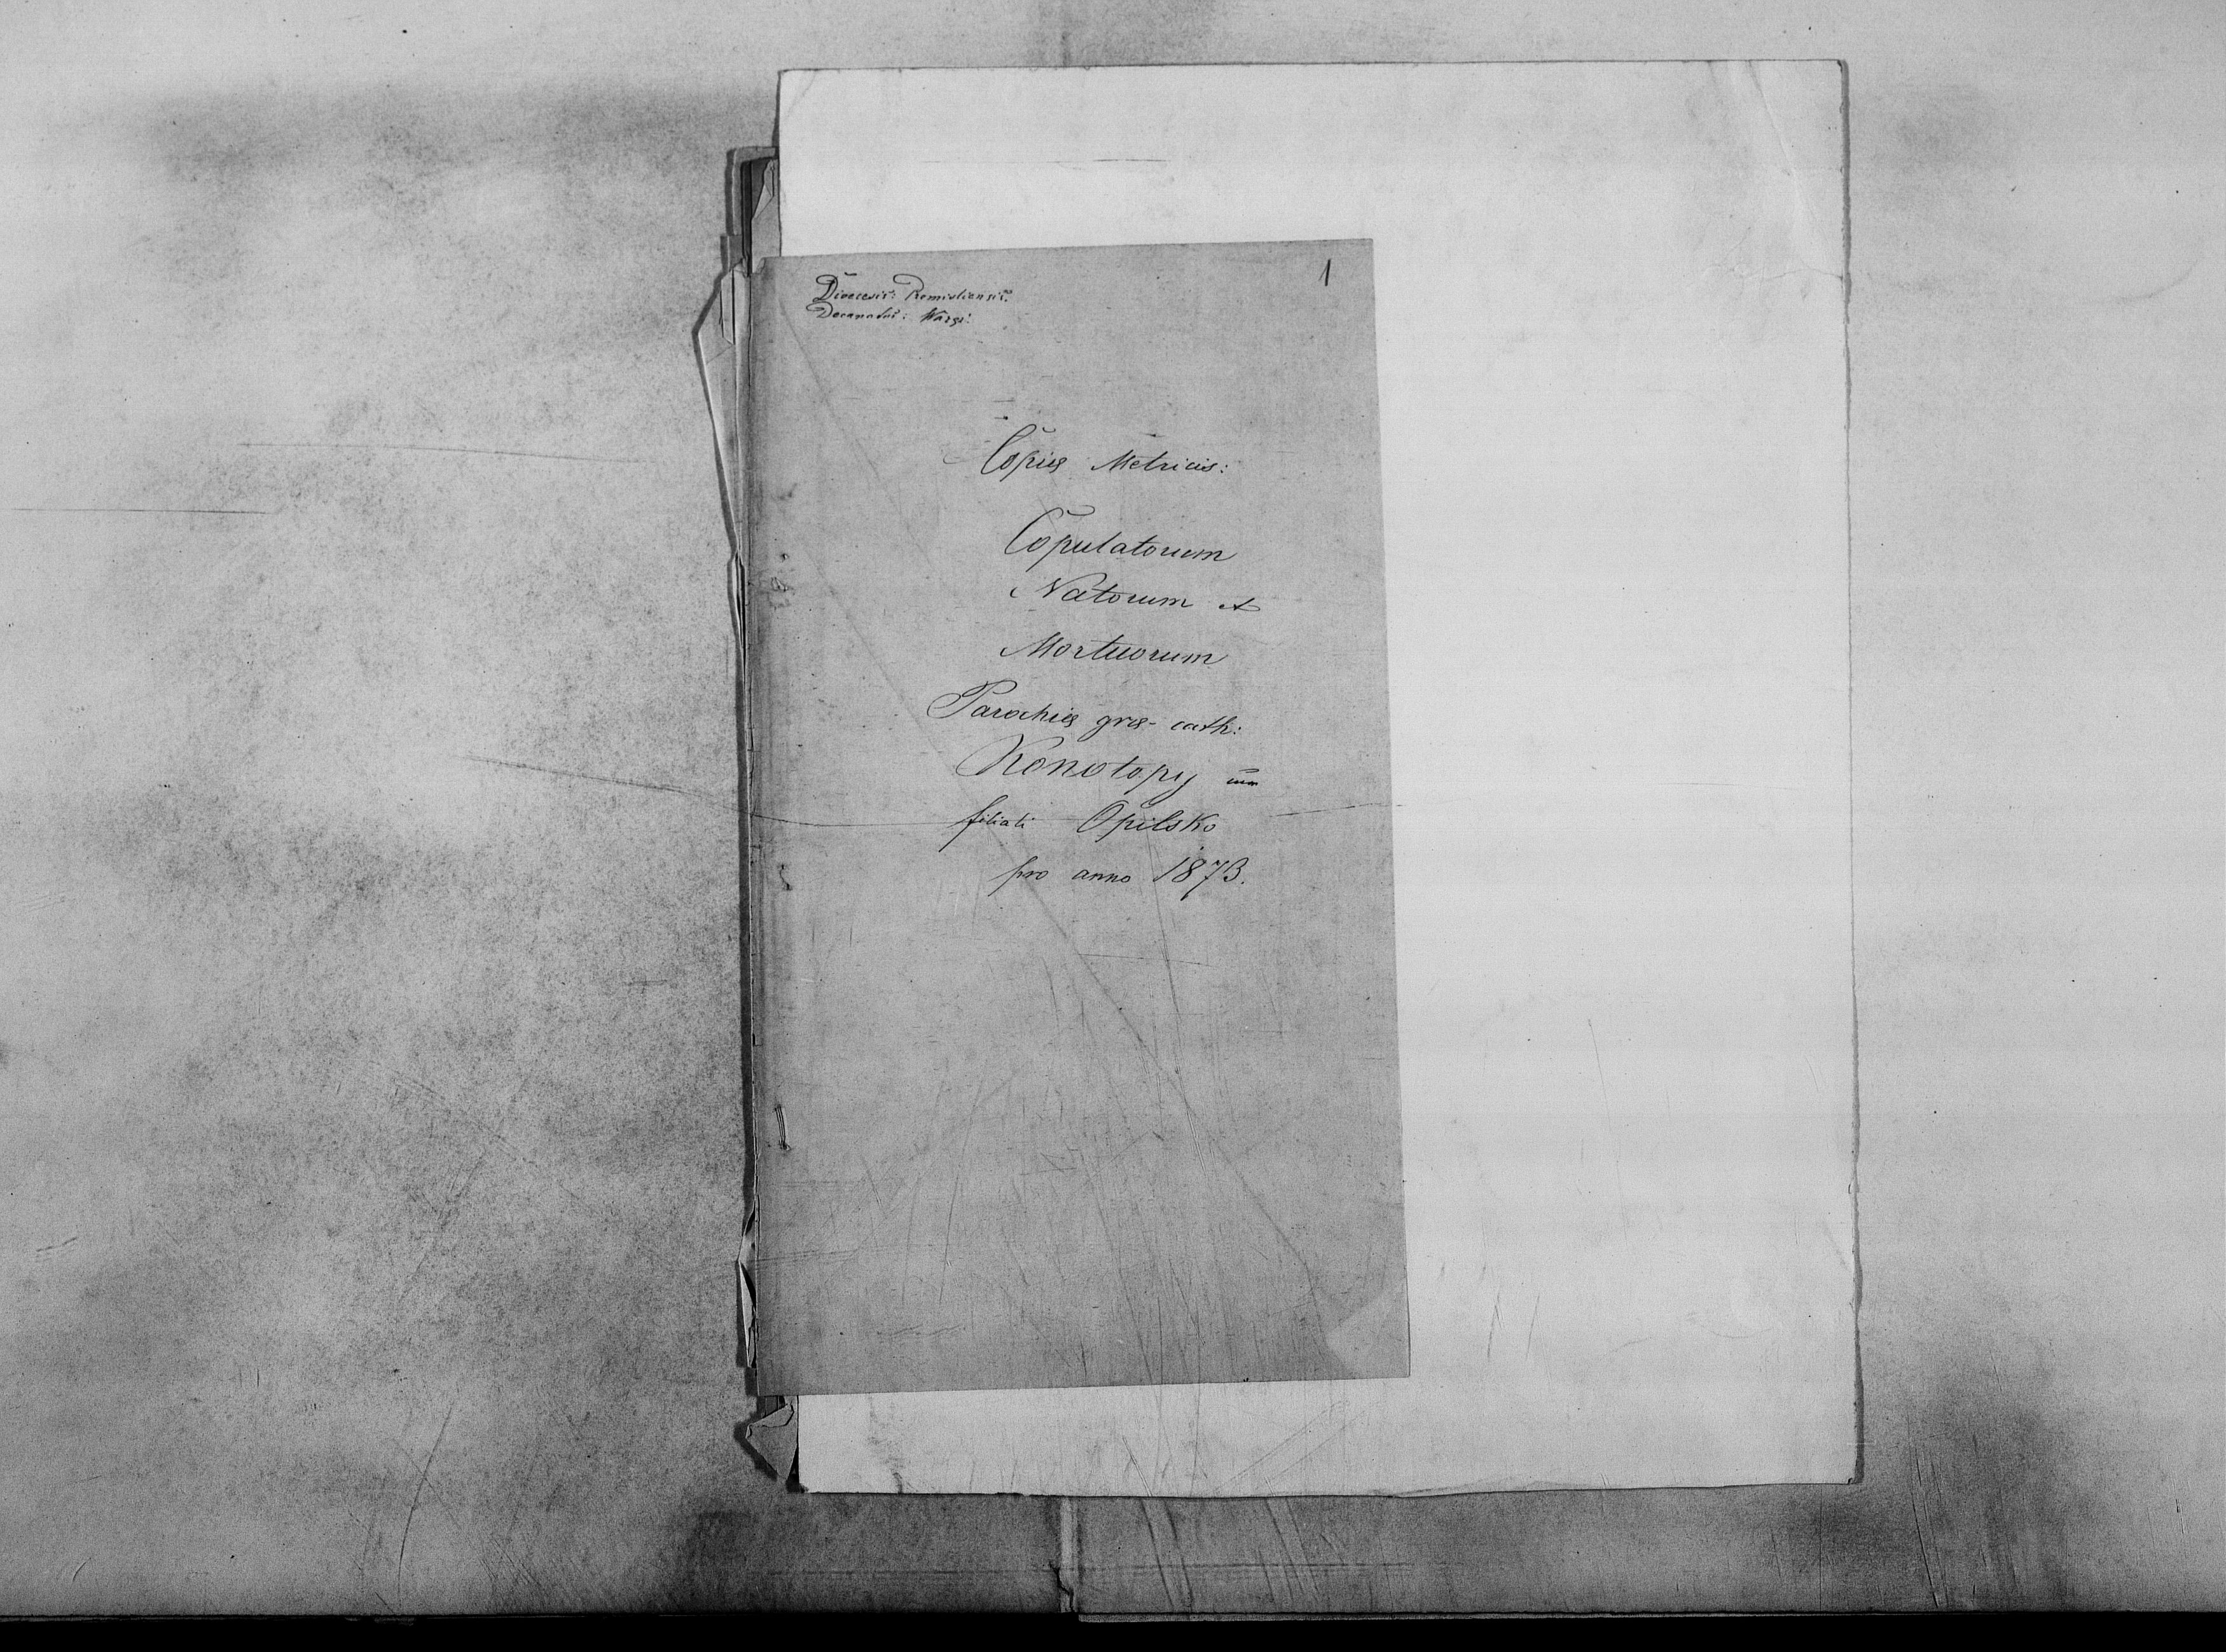 1
Dioecesis: Premisliensis.
Decanatus: Waręż:
Copiæ Metricis:
Copulatorum
Natorum et
Mortuorum
Parochiæ græ-cath:
Konotopy cum
filiali Opilsko
pro anno 1873.